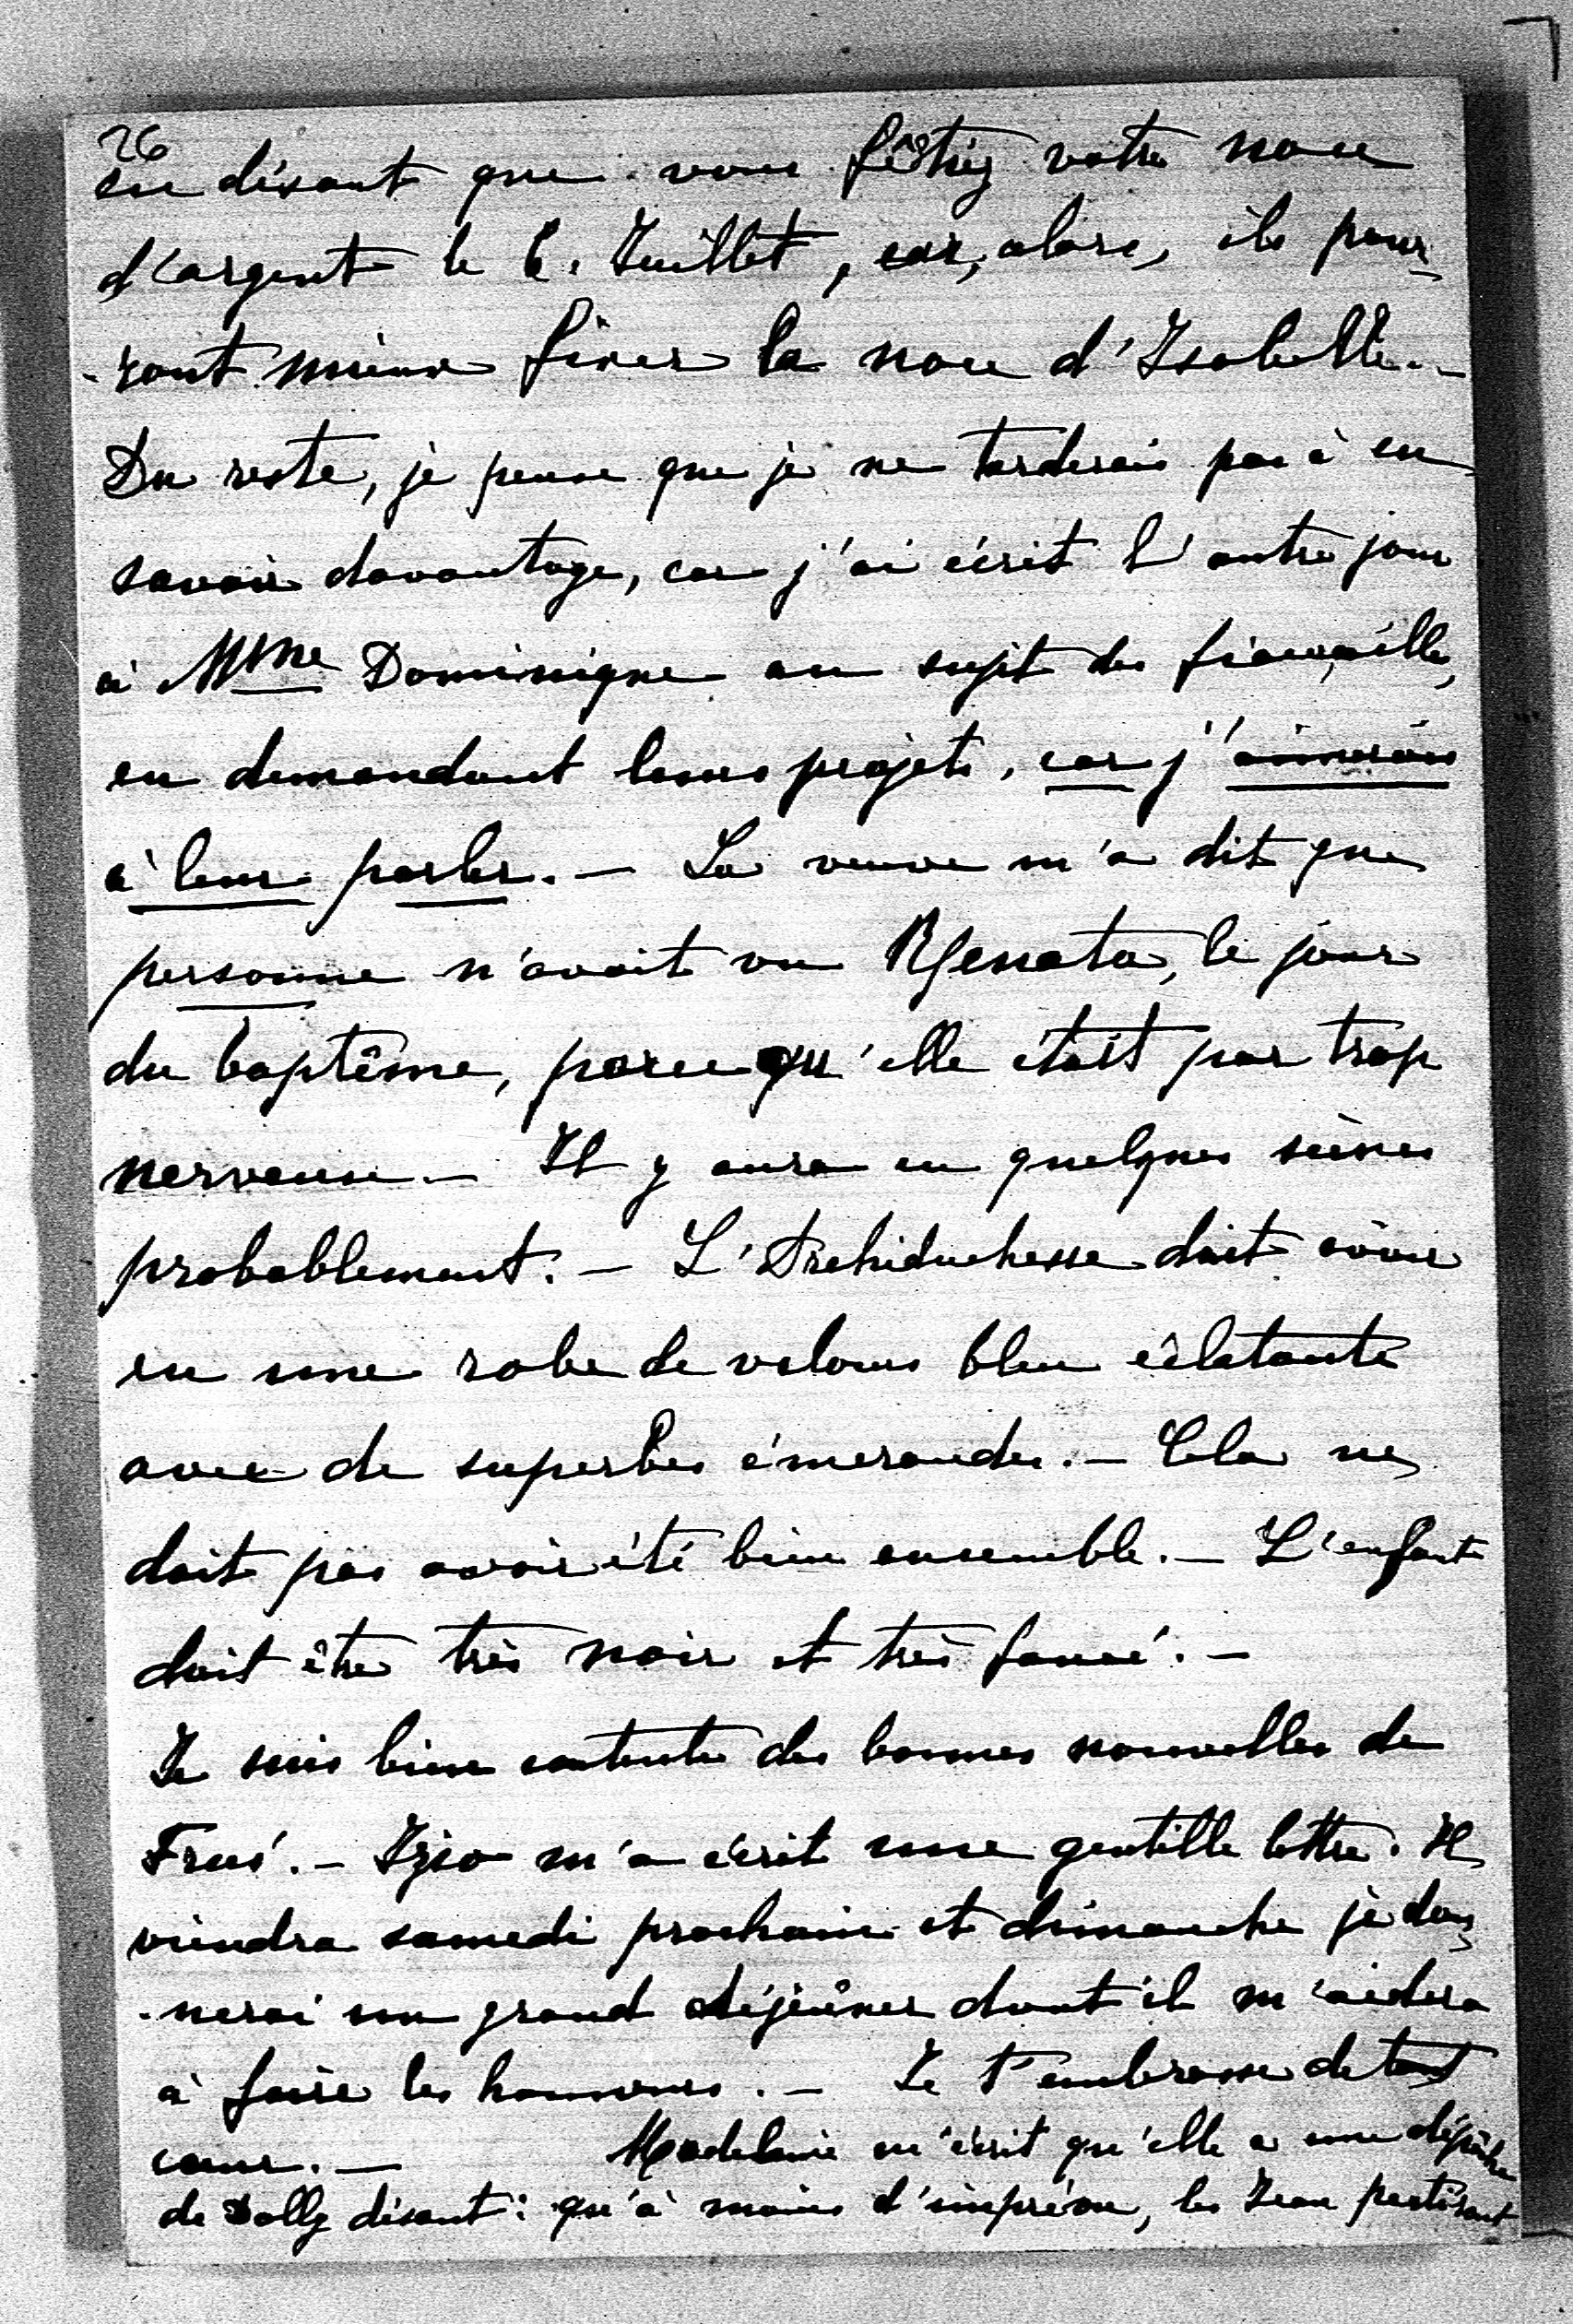 26
en disant que vous fêtriez votre noce
d'argent le 6. Juillet, car, alors, ils pour-
-ront mieux fixer la noce d'Isabelle. -
Du reste, je pense que je ne tarderais pas à en
savoir davantage, car j'ai écrit l'autre jour
à Mme Dominique au sujet des fiançailles,
en demandant leurs projets, car j'aimerais
à leur parler. - La veuve m'a dit que
personne n'avait vu Renata, le jour
du baptême, parce qu'elle était par trop
nerveuse - Il y aura eu quelques scènes
probablement. - L'Archiduchesse doit avoir
eu une robe de velours bleu éclatante
avec de superbes émeraudes. - Cela ne
doit pas avoir été bien ensemble. - L'enfant
doit être très noir et très foncé. -
Je suis bien contente des bonnes nouvelles de
. - m'a écrit une gentille lettre. Il
viendra samedi prochain et dimanche je don-
-nerai un grand déjeûner dont il m'aidera
à faire les honneurs. - Je t'embrasse de tout
cœur. - Madeleine m'écrit qu'elle a une dépêche
de Dolly disant: qu'à moins d'imprévu, les Jean partiront